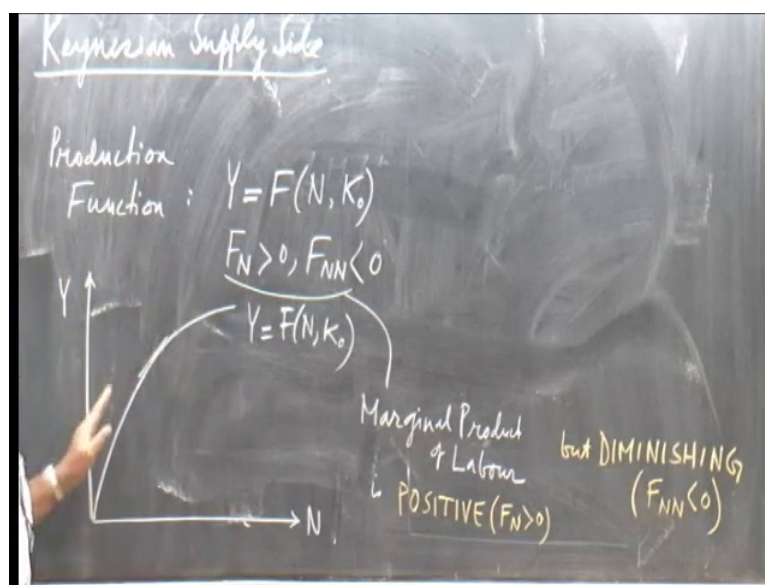 Keynesian Supply Side
Production
Function : Y = F(N, K₀)
F_N > 0, F_NN < 0
Y
Y = F(N, K₀)
Marginal Product
of Labour
is POSITIVE (F_N > 0)
but DIMINISHING
(F_NN < 0)
N